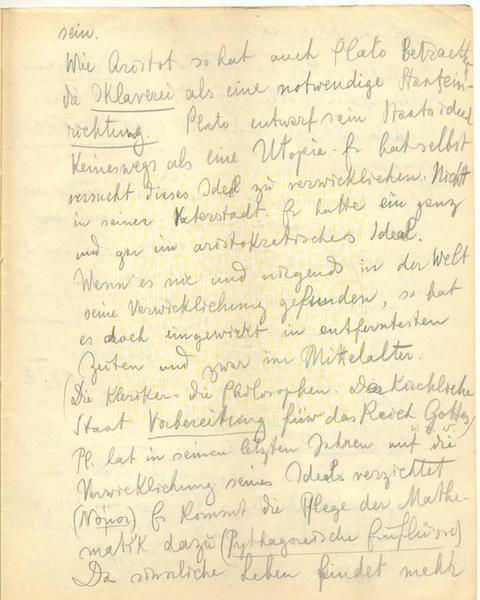 sein.
Wie Aristot so hat auch Plato Betracht
die Sklaverei als eine notwendige Staatsein-
richtung. Plato entwarf sein Staatsideal
keineswegs als eine Utopie. Er hat selbst
versucht dieses Ideal zu verwirklichen. Nicht
in seiner Vaterstadt. Er hatte ein ganz
und gar im aristokratisches Ideal.
Wenn es nie und nirgends in der Welt
seine Verwirklichung gefunden, so hat
es doch eingewirkt in entferntesten
Zeiten und zwar im Mittelalter.
(Die Kleriker = die Philosophen. Der Kirchliche
Staat Vorbereitung für das Reich Gottes)
Pl. hat in seinen letzten Jahren auf die
Verwirklichung seines Ideals verzichtet
(Νόμοι) Er kommt die Pflege der Mathe-
matik dazu (Pythagoreische Einflüsse)
Das sinnliche Leben findet mehr